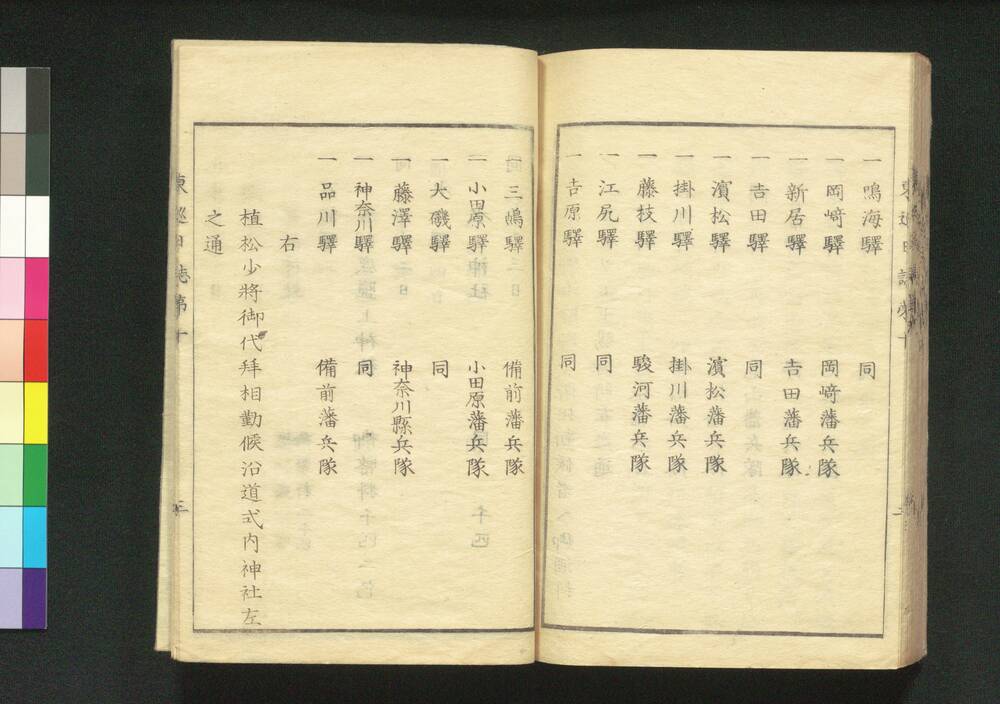 一鳴海驛 同
一岡﨑驛 岡﨑藩兵隊
一新居驛 吉田藩兵隊
一吉田驛 同
一濱松驛 濱松藩兵隊
一掛川驛 掛川藩兵隊
一藤枝驛 駿河藩兵隊
一江尻驛 同
一吉原驛 同
一三嶋驛 備前藩兵隊
一小田原驛 小田原藩兵隊
一大磯驛 同
一藤澤驛 神奈川縣兵隊
一神奈川驛 同
一品川驛 備前藩兵隊
右
植松少將御代拜相勤候沿道式内神社左
之通
東巡日誌第十 二